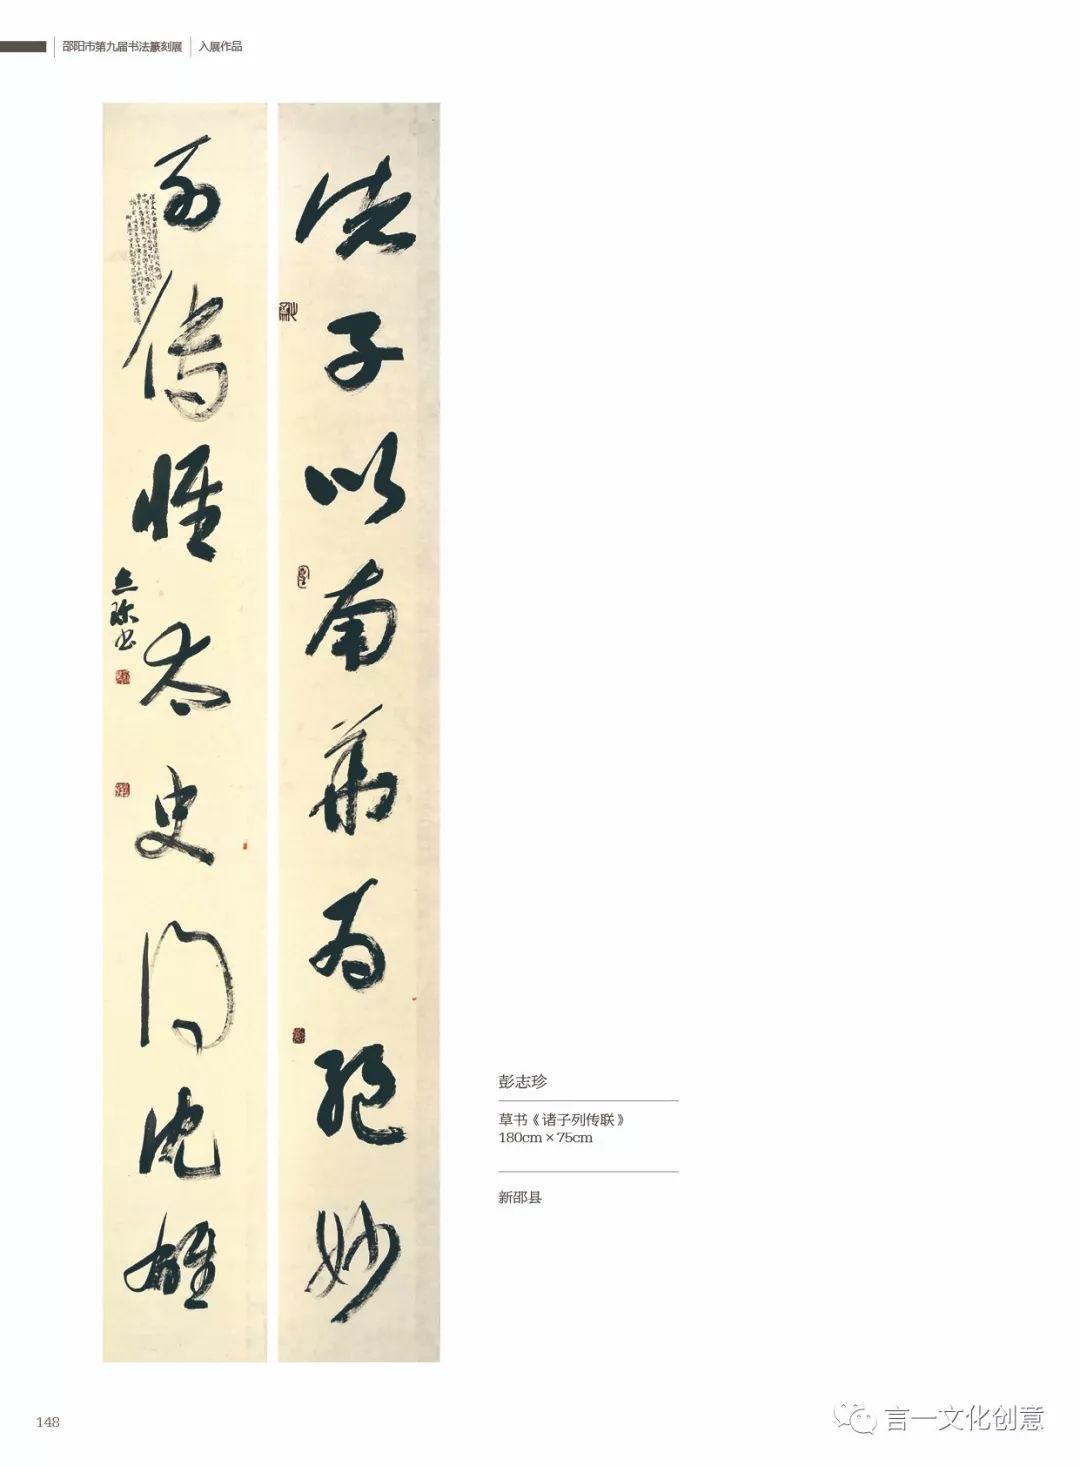 邵阳市第九届书法篆刻展 入展作品
诸子以南华为绝妙
列传惟太史同沈雄
志珍书
彭志珍
草书《诸子列传联》
180cm×75cm
新邵县
148
言一文化创意